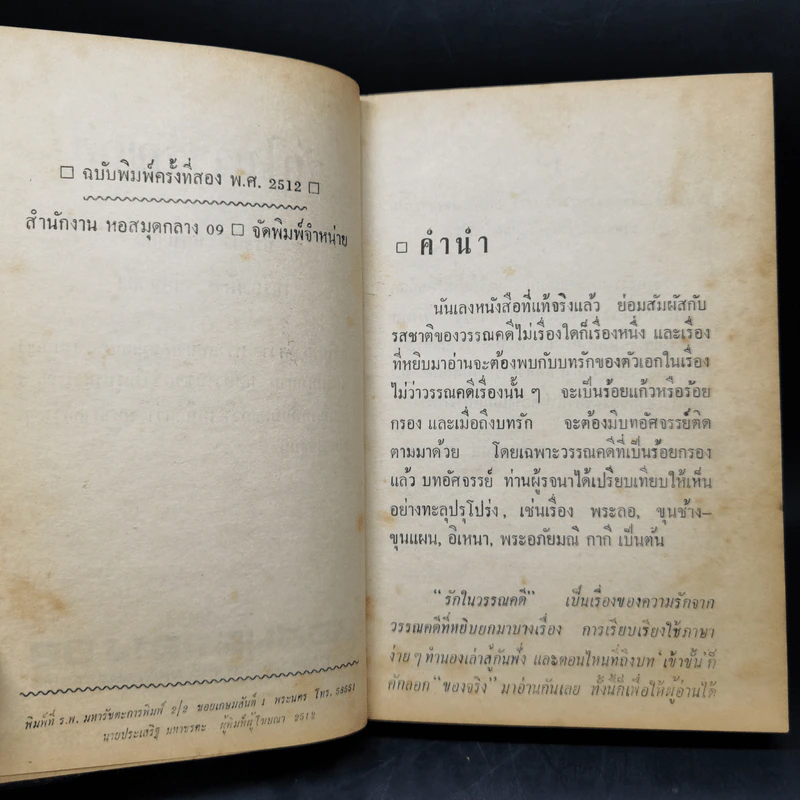 □ ฉบับพิมพ์ครั้งที่สอง พ.ศ. 2512 □
สำนักงาน หอสมุดกลาง 09 □ จัดพิมพ์จำหน่าย
พิมพ์ที่ ร.พ. มหารัชตะการพิมพ์ 2/2 ซอยเกษมสันต์ 1 พระนคร โทร. 58551
นายประเสริฐ มหารชตะ ผู้พิมพ์ผู้โฆษณา 2512
□ คำนำ
นันเลงหนังสือที่แท้จริงแล้ว ย่อมสัมผัสกับ
รสชาติของวรรณคดีไม่เรื่องใดก็เรื่องหนึ่ง และเรื่อง
ที่หยิบมาอ่านจะต้องพบกับบทรักของตัวเอกในเรื่อง
ไม่ว่าวรรณคดีเรื่องนั้น ๆ จะเป็นร้อยแก้วหรือร้อย
กรอง และเมื่อถึงบทรัก จะต้องมีบทอัศจรรย์ติด
ตามมาด้วย โดยเฉพาะวรรณคดีที่เป็นร้อยกรอง
แล้ว บทอัศจรรย์ ท่านผู้รจนาได้เปรียบเทียบให้เห็น
อย่างทะลุปรุโปร่ง, เช่นเรื่อง พระลอ, ขุนช้าง–
ขุนแผน, อิเหนา, พระอภัยมณี กากี เป็นต้น
“รักในวรรณคดี” เป็นเรื่องของความรักจาก
วรรณคดีที่หยิบยกมาบางเรื่อง การเรียบเรียงใช้ภาษา
ง่าย ๆ ทำนองเล่าสู่กันฟัง และตอนไหนที่ถึงบท ‘เข้าขั้น’ ก็
คัดลอก “ของจริง” มาอ่านกันเลย ทั้งนี้ก็เพื่อให้ผู้อ่านได้